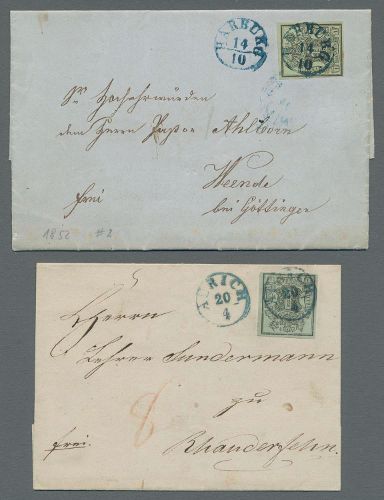 HARBURG
14
10
HARBURG
14
10
Sr Hochehrwürden
dem Herrn Pastor Ahlborn
Weende
frei
bei Göttingen
1852 #2
AURICH
20
4
Herrn
Lehrer Sundermann
8
zu
frei.
Rhaudersehn.